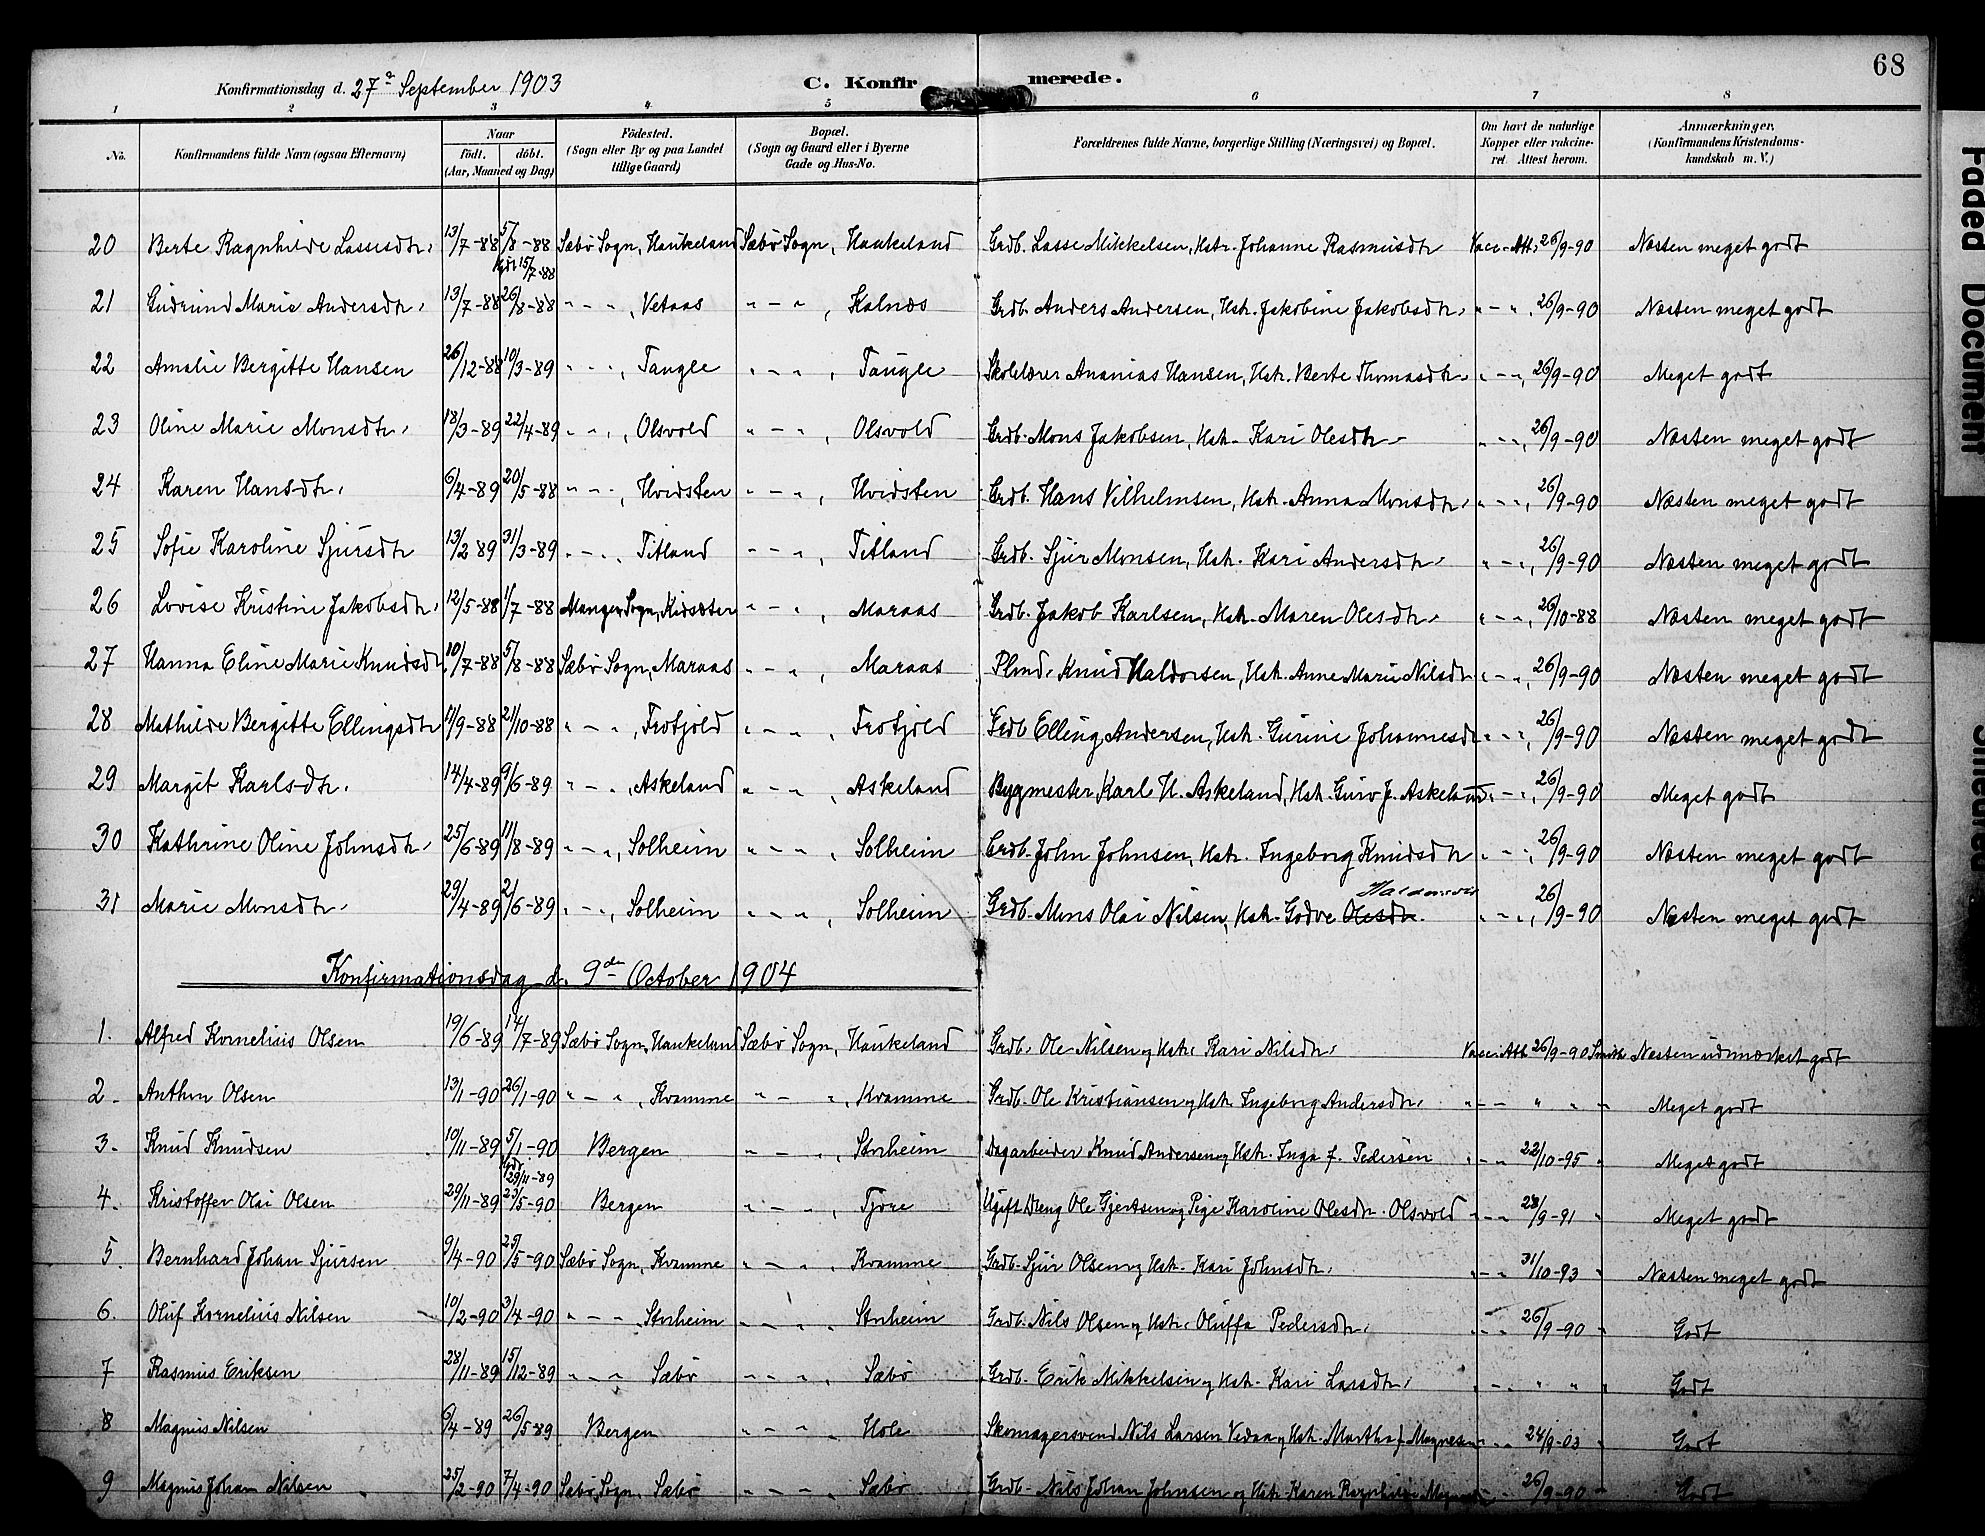 68
Konfirmationsdag d. 27de September 1903 C. Konfirmerede.
1 2 3 4 5 6 7 8
No. Konfirmandens fulde Navn (ogsaa Efternavn) Naar födt. döbt. (Aar, Maaned og Dag) Födested. (Sogn eller By og paa Landet tillige Gaard) Bopæl. (Sogn og Gaard eller i Byerne Gade og Hus-No. Forældrenes fulde Navne, borgerlige Stilling (Næringsvei) og Bopæl. Om havt de naturlige Kopper eller vakcineret. Attest herom. Anmærkninger. (Konfirmandens Kristendomskundskab m. V.)
20 Berte Ragnhilde Lassesdtr. 13/7-88 5/8-88 Hjdt 15/7-88 Sæbø Sogn, Haukeland Sæbø Sogn, Haukeland Grdb. Lasse Mikkelsen, Hstr. Johanne Rasmusdtr Vacc. Att. 26/9-90 Næsten meget godt
21 Gudrund Marie Andersdtr. 13/7-88 26/8-88 " - " , Vetaas " - " , Kalnæs Grdb. Anders Andersen, Hstr. Jakobine Jakobsdtr. " - " , 26/9-90 Næsten meget godt
22 Amalie Bergitte Hansen 26/12-88 10/3-89 " - " , Taugle " - " , Taugle Skolelærer Ananias Hansen, Hstr. Berte Thomasdtr. " - " , 26/9-90 Meget godt
23 Oline Marie Monsdtr. 18/3-89 22/4-89 " - " , Olsvold " - " , Olsvold Grdb. Mons Jakobsen, Hstr. Kari Olesdtr. " - " , 26/9-90 Næsten meget godt
24 Karen Hansdtr. 6/4-89 20/5-88 " - " , Hvidsten " - " , Hvidsten Grdb. Hans Vilhelmsen, Hstr. Anna Monsdtr. " - " , 26/9-90 Næsten meget godt
25 Sofie Karoline Sjursdtr 13/2 89 31/3-89 " - " , Titland " - " , Titland Grdb. Sjur Monsen, Hstr. Kari Andersdtr. " - " , 26/9-90 Næsten meget godt
26 Lovise Kristine Jakobsdtr. 12/5-88 1/7-88 Manger Sogn, Kidsæter " - " , Maraas Grdb. Jakob Karlsen, Hstr. Maren Olesdtr. " - " , 26/10-88 Næsten meget godt
27 Hanna Eline Marie Knudsdtr. 10/7-88 5/8-88 Sæbø Sogn, Maraas " - " , Maraas Plmd. Knud Haldorsen, Hstr. Anne Marie Nilsdtr " - " , 26/9-90 Næsten meget godt
28 Mathilde Bergitte Ellingsdtr 11/9-88 21/10-88 " - " , Trofjold " - " , Trofjold Grdb Elling Andersen, Hstr. Gurine Johannesdtr " - " , 26/9-90 Næsten meget godt
29 Margit Karlsdtr. 14/4-89 9/6-89 " - " , Askeland " - " , Askeland Bygmester Karl H. Askeland, Hstr. Guro J. Askeland. " - " , 26/9-90 Meget godt
30 Kathrine Oline Johnsdtr. 25/6-89 11/8-89 " - " , Solheim " - " , Solheim Grdb. John Johnsen, Hstr. Ingeborg Knudsdtr " - " , 26/9-90 Næsten meget godt
31 Marie Monsdtr. 29/4-89 2/6-89 " - " , Solheim " - " , Solheim Grdb. Mons Olai Nilsen, Hstr. Godve Olesdtr. " - " , 26/9-90 Næsten meget godt
Konfirmationsdag d. 9de October 1904
1. Alfred Kornelius Olsen 19/6-89 14/7-89 Sæbø Sogn, Haukeland Sæbø Sogn, Haukeland Grdb. Ole Nilsen og Hstr. Kari Nilsdtr. Vacc. Att. 26/9-90 Smith Næsten udmærket godt
2. Anthon Olsen 13/1-90 26/1-90 " - " , Kvamme " - " , Kvamme Grdb. Ole Kristiansen og Hstr. Ingeborg Andersdtr. " - " " " " Meget godt
3. Knud Knudsen 10/11-89 5/1-90 Bergen " - " , Stnheim Dagarbeider Knud Andersen og Hstr. Inga f. Pedersen " - " 22/10-95 " Meget godt
4. Kristoffer Olai Olsen 29/11-89 Hjdt 29/11-89 23/5-90 Bergen " - " , Tjore Ugift Dreng Ole Gjertsen og Pige Karoline Olesdtr. Olsvold " - " 28/9-91 " Meget godt
5. Bernhard Johan Sjursen 9/4-90 25/5-90 Sæbø Sogn, Kvamme " - " , Kvamme Grdb. Sjur Olsen og Hstr. Kari Johnsdtr. " - " 31/10-93 " Næsten meget godt
6. Oluf Kornelius Nilsen 10/2-90 3/4-90 " - " , Stnheim " - " , Stnheim Grdb. Nils Olsen og Hstr. Oluffa Pedersdtr. " - " 26/9-90 " Godt
7 Rasmus Eriksen 28/11-89 15/12-89 " - " , Sæbø " - " , Sæbø Grdb. Erik Mikkelsen og Hstr. Kari Lassdtr. " - " " " " Godt
8 Magnus Nilsen 6/4-89 26/5-89 Bergen " - " , Hole Skomagersvend Nils Larsen Vedaa og Hstr. Martha f. Magnesen " - " 24/9-03 " Godt
9 Magnus Johan Nilsen 25/2-90 7/4-90 Sæbø Sogn, Sæbø " - " , Sæbø Grdb. Nils Johan Johnsen og Hstr. Karen Ragnhilde " - " 26/9-90 " Godt
Faded Document